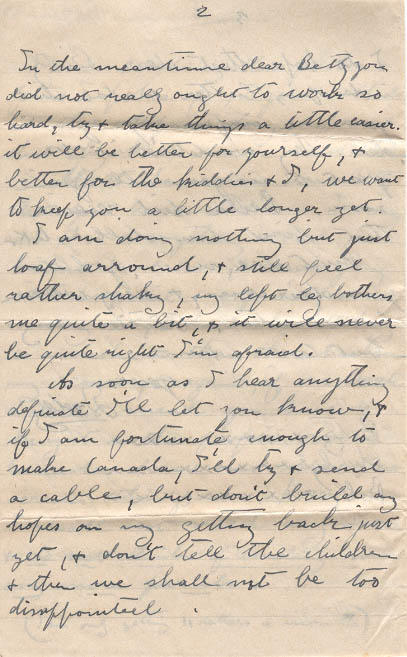 2
In the meantime dear Betty you
did not really ought to work so
hard, try & take things a little easier.
it will be better for yourself, &
better for the kiddies & I, we want
to keep you a little longer yet.
I am doing nothing but just
loaf arround, & still feel
rather shaky, my left leg bothers
me quite a bit, & it will never
be quite right I'm afraid.
As soon as I hear anything
definate I'll let you know, &
if I am fortunate enough to
make Canada, I'll try & send
a cable, but don't build any
hopes on my getting back just
yet, & don't tell the children
& then we shall not be too
disappointed.